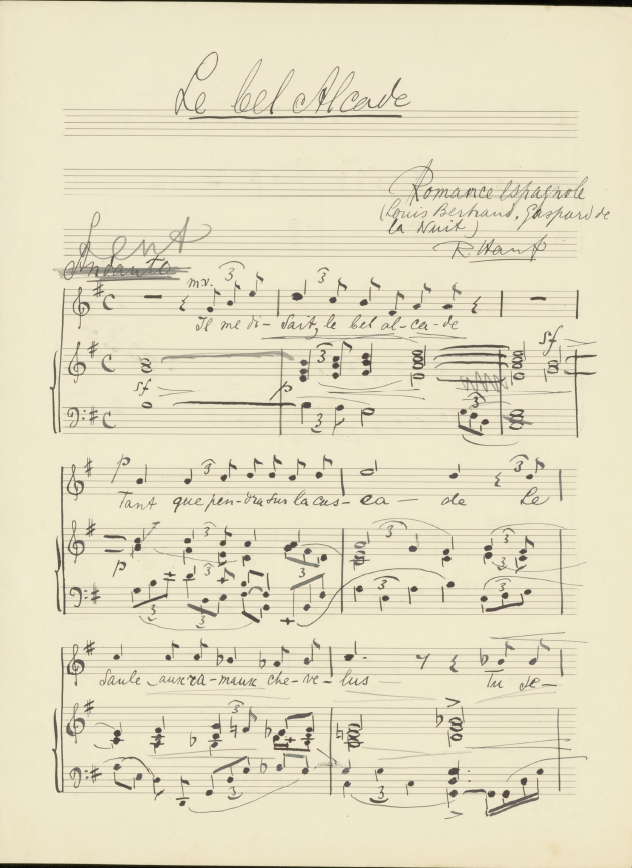 Le bel Alcade
Romance espagnole
(Louis Bertrand, Gaspard de
la Nuit)
R. Hanf
Lent
Andante
mv. 3 3
Il me di- sait, le bel al-ca-de
sf
3
sf p
3 3
p 3 3
Tant que pen-dra sur la cas- ca- de Le
3 3
p
3 3
3 3 3
Saule aux ra- maux che-ve-lus Tu se-
3
3